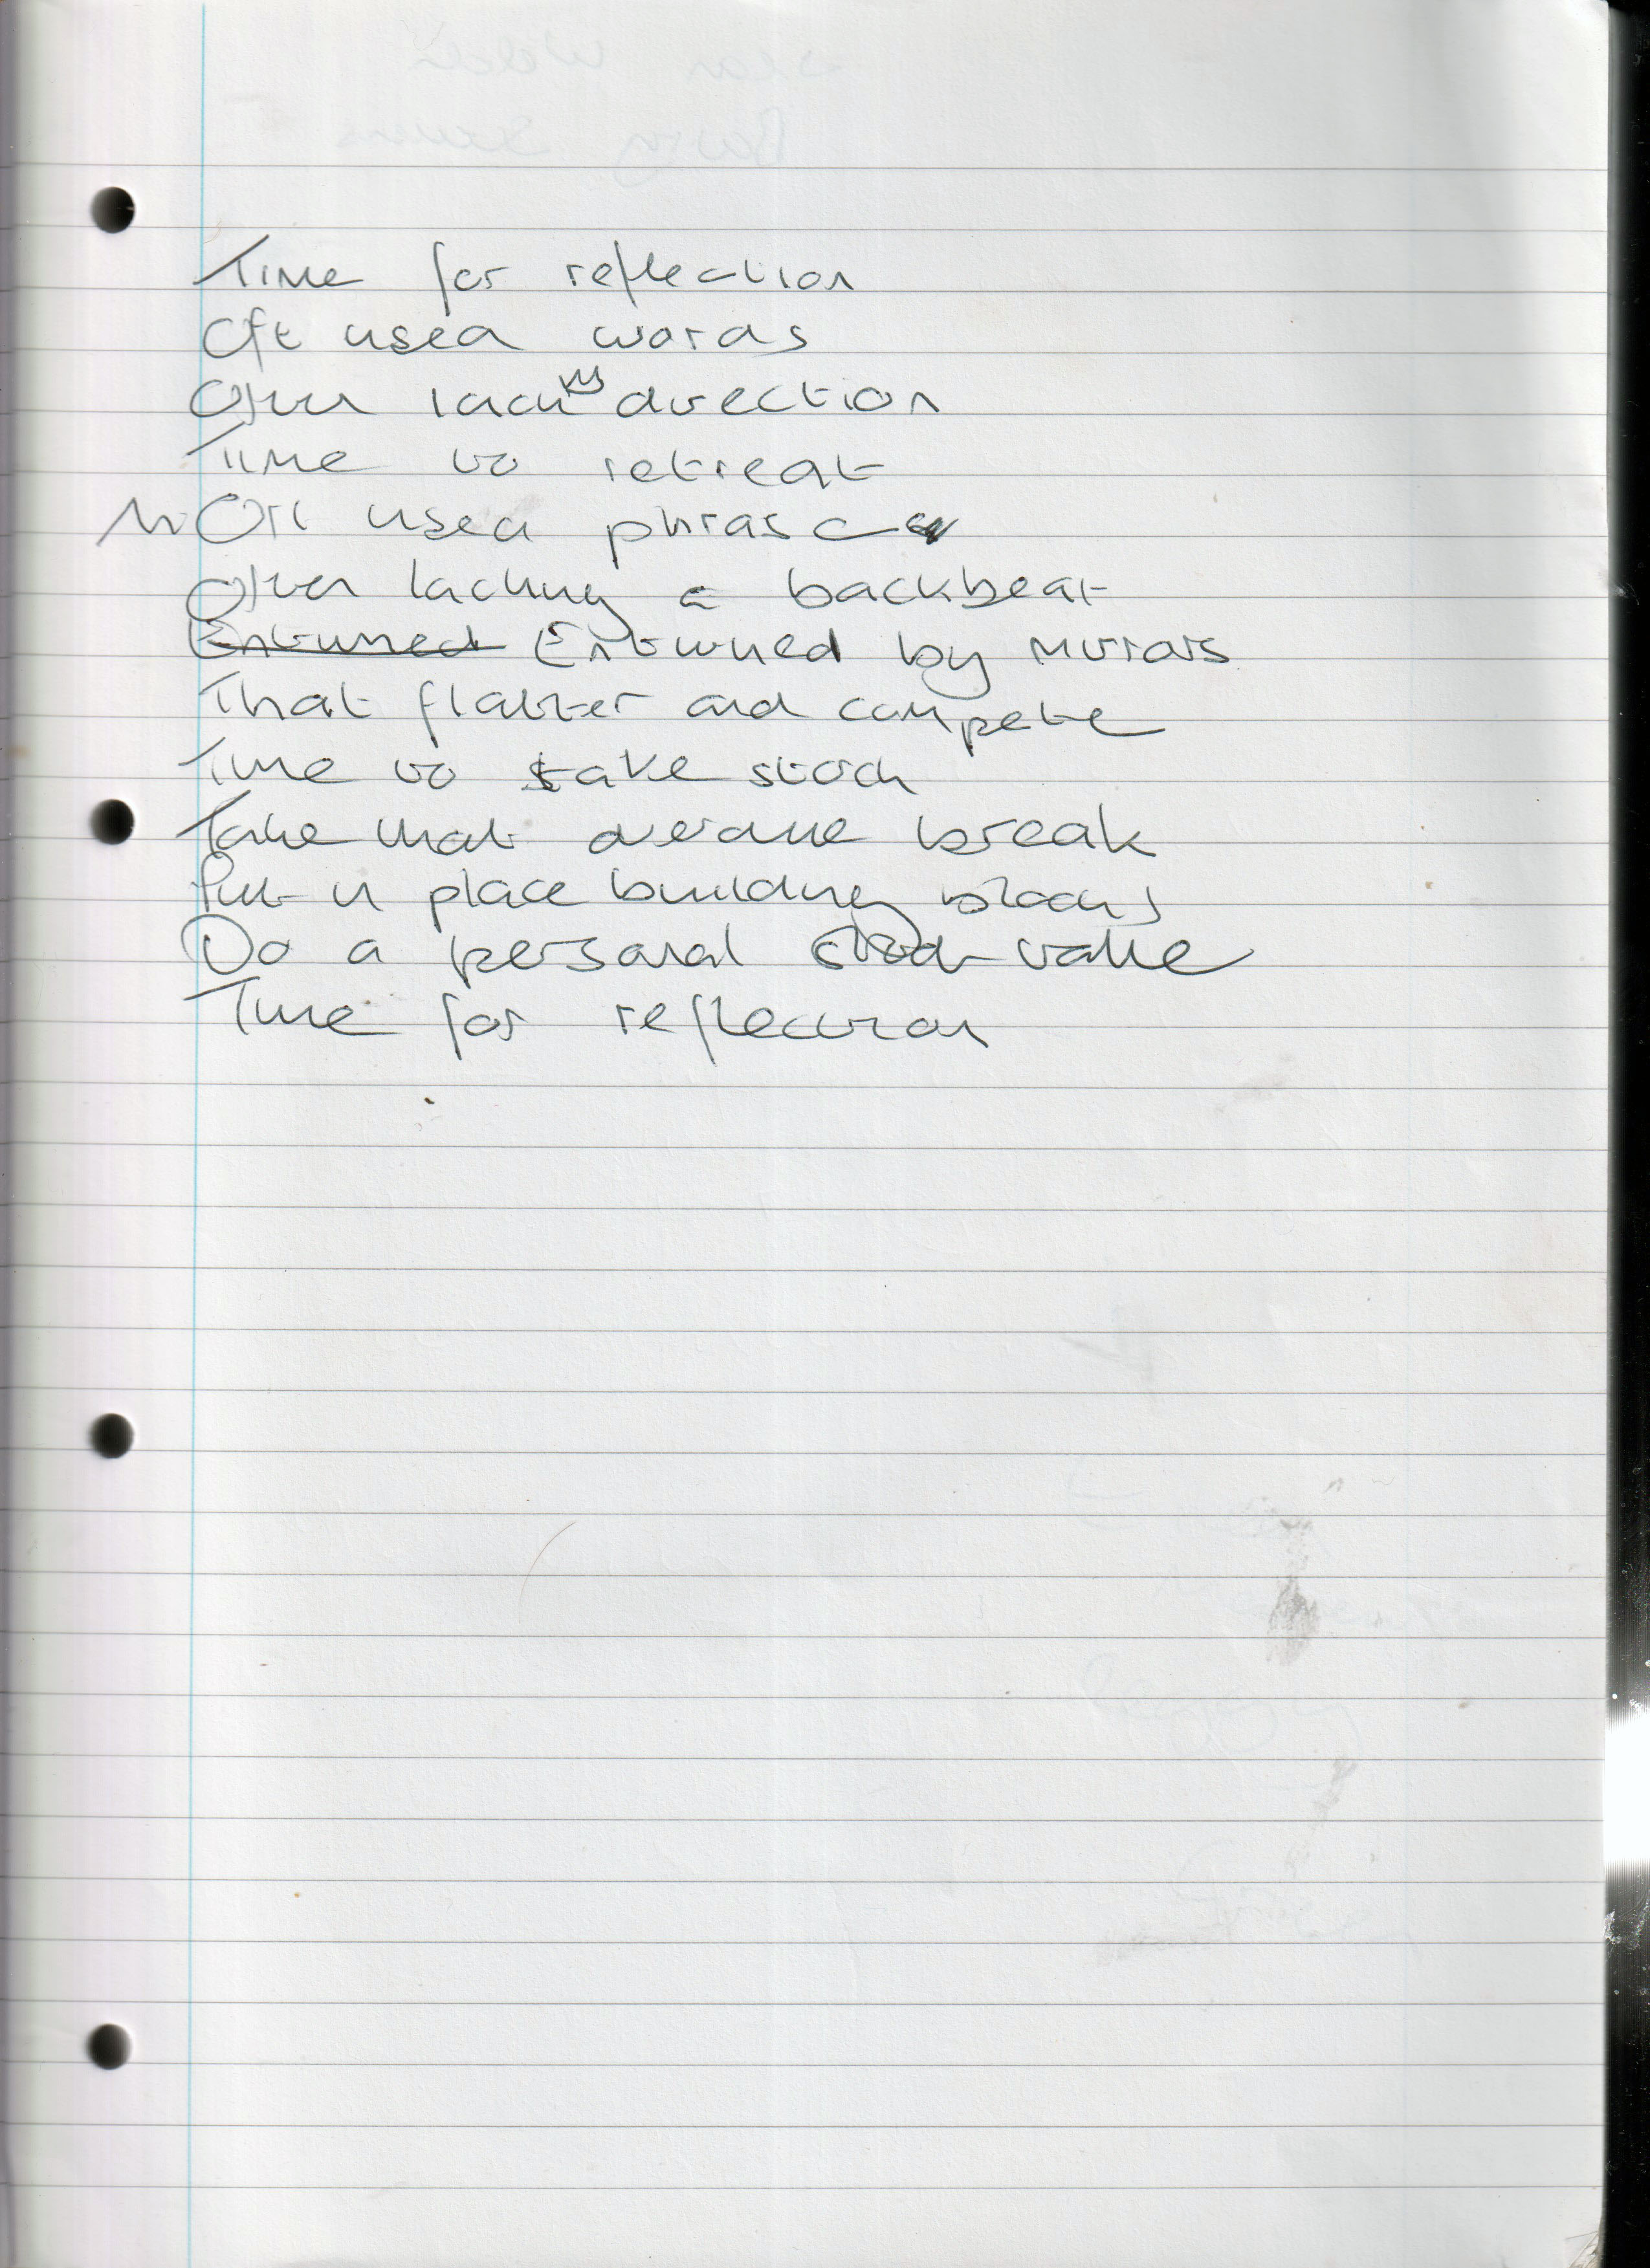 Time for reflection
Oft used words
Often lacking direction
Time to retreat
Oft used phrase
Often lacking a backbeat
Entwined Entwined by mirrors
That flatter and compete
Time to take stock
Take that overdue break
Put in place building blocks
Do a personal stock take
Time for reflection